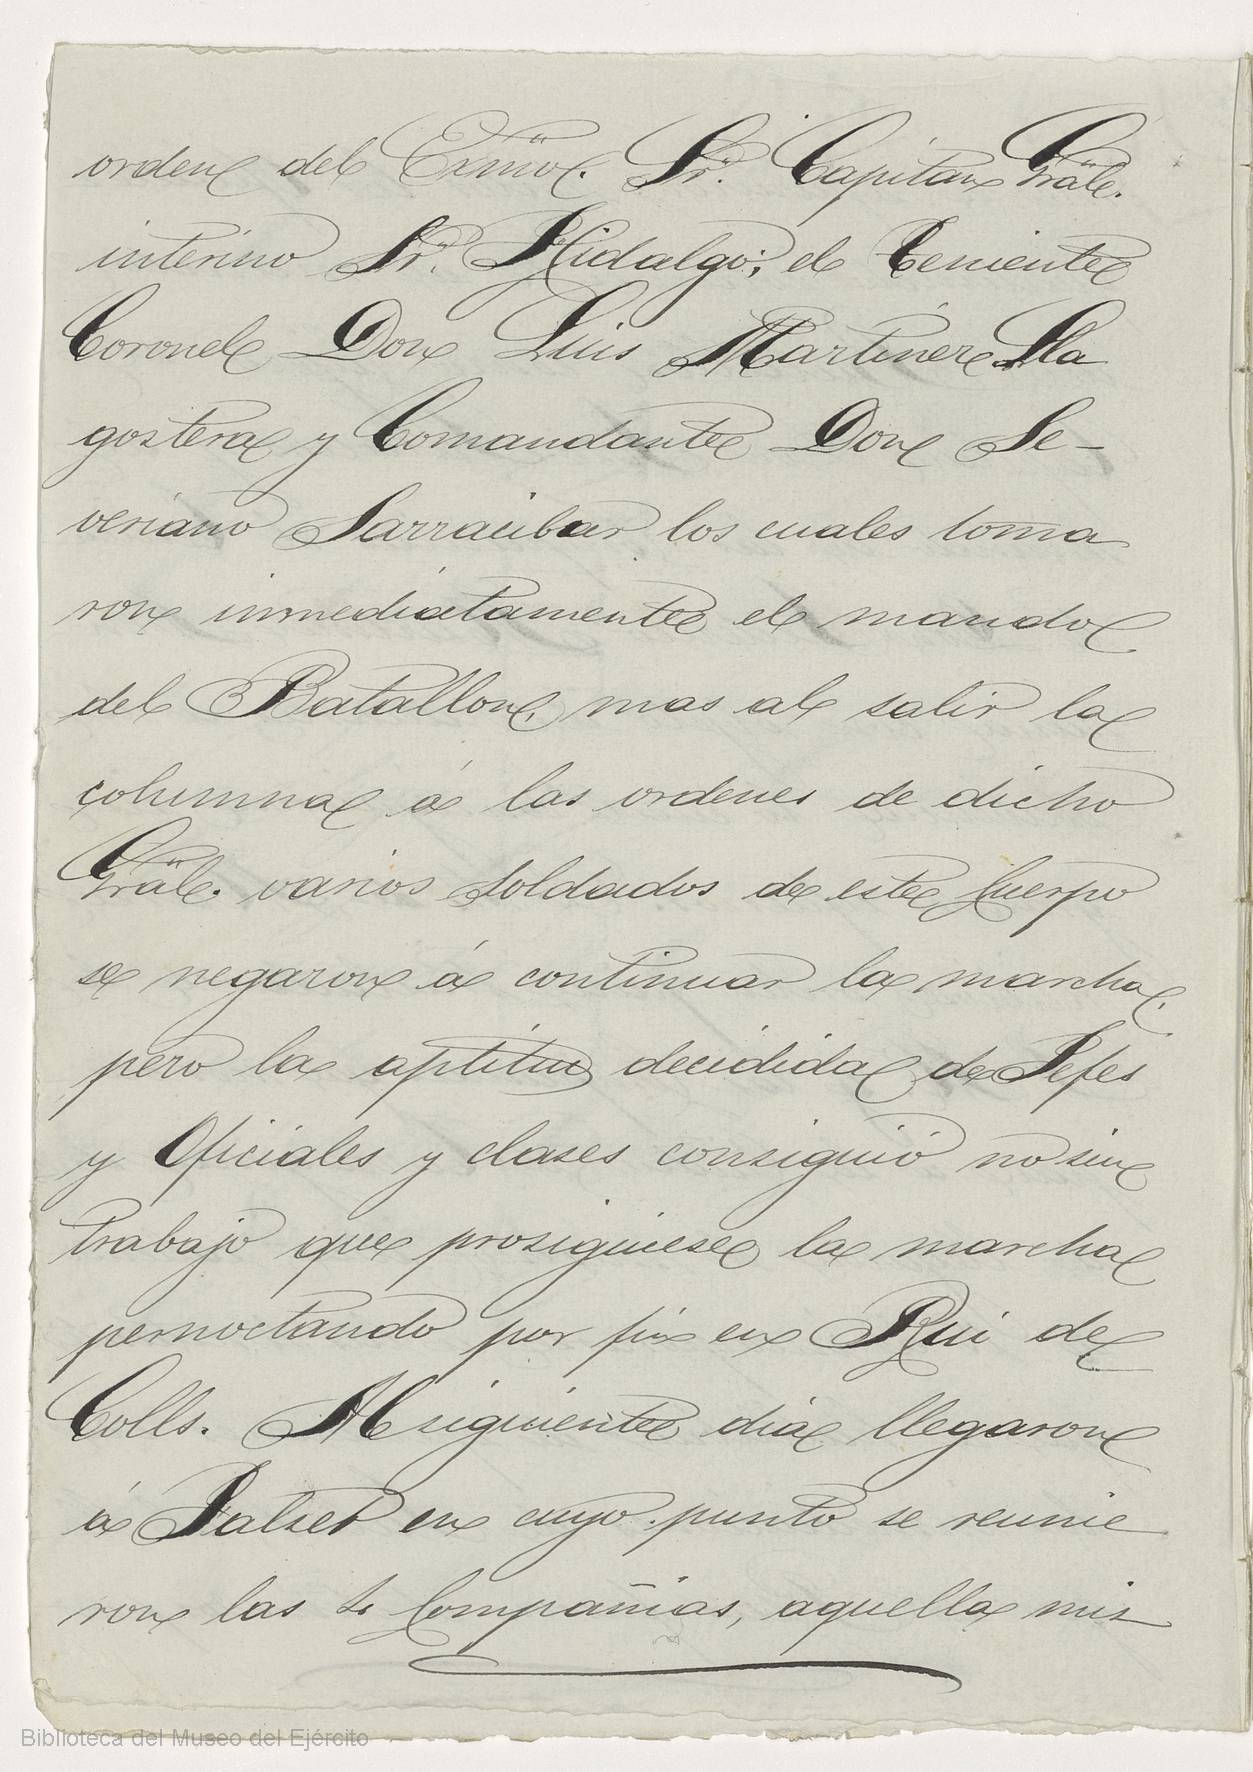 orden del Exmo. Sr. Capitan Gräl.
interino Sr. Hidalgo, el Teniente
Coronel Don Luis Martinez Lla
gostera y Comandante Don Se-
veriano Sarracibar los cuales toma
ron inmediatamente el mando
del Batallon, mas al salir la
columna á las ordenes de dicho
Gräl. varios soldados de este Cuerpo
se negaron á continuar la marcha,
pero la aptitud decidida de Jefes
y Oficiales y clases consiguió no sin
trabajo que prosiguiese la marcha
pernoctando por fin en Rui de
Colls. Al siguiente dia llegaron
á Falset en cuyo punto se reunie
ron las Compañias, aquella mis
Biblioteca del Museo del Ejército